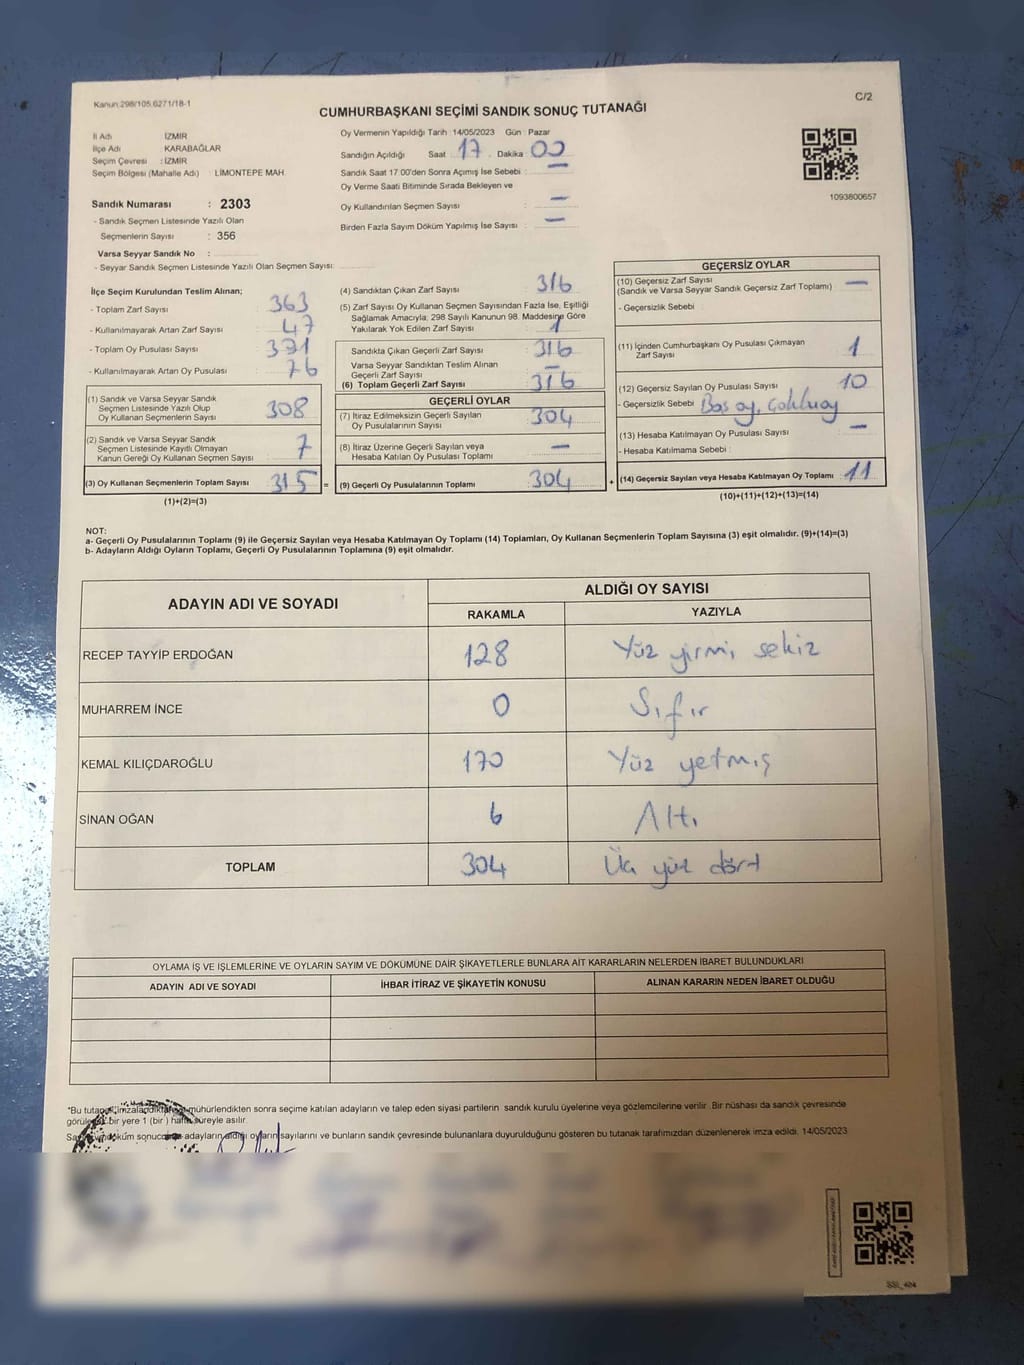 Kanun:298/105,6271/18-1
C/2
CUMHURBAŞKANI SEÇİMİ SANDIK SONUÇ TUTANAĞI
İl Adı İZMİR
İlçe Adı KARABAĞLAR
Seçim Çevresi : İZMİR
Seçim Bölgesi (Mahalle Adı) LİMONTEPE MAH.
Sandık Numarası : 2303
- Sandık Seçmen Listesinde Yazılı Olan
Seçmenlerin Sayısı : 356
Varsa Seyyar Sandık No :
- Seyyar Sandık Seçmen Listesinde Yazılı Olan Seçmen Sayısı:
Oy Vermenin Yapıldığı Tarih :14/05/2023 Gün : Pazar
Sandığın Açıldığı Saat 17 . Dakika 00
Sandık Saat 17:00'den Sonra Açımış İse Sebebi : —
Oy Verme Saati Bitiminde Sırada Bekleyen ve
Oy Kullandırılan Seçmen Sayısı : —
Birden Fazla Sayım Döküm Yapılmış İse Sayısı : —
1093800657
İlçe Seçim Kurulundan Teslim Alınan;
- Toplam Zarf Sayısı 363
- Kullanılmayarak Artan Zarf Sayısı 47
- Toplam Oy Pusulası Sayısı 391
- Kullanılmayarak Artan Oy Pusulası 76
(1) Sandık ve Varsa Seyyar Sandık
Seçmen Listesinde Yazılı Olup
Oy Kullanan Seçmenlerin Sayısı 308
(2) Sandık ve Varsa Seyyar Sandık
Seçmen Listesinde Kayıtlı Olmayan
Kanun Gereği Oy Kullanan Seçmen Sayısı 7
(3) Oy Kullanan Seçmenlerin Toplam Sayısı 315 =
(1)+(2)=(3)
(4) Sandıktan Çıkan Zarf Sayısı 316
(5) Zarf Sayısı Oy Kullanan Seçmen Sayısından Fazla İse, Eşitliği
Sağlamak Amacıyla; 298 Sayılı Kanunun 98. Maddesine Göre
Yakılarak Yok Edilen Zarf Sayısı 1
Sandıkta Çıkan Geçerli Zarf Sayısı 316
Varsa Seyyar Sandıktan Teslim Alınan
Geçerli Zarf Sayısı —
(6) Toplam Geçerli Zarf Sayısı 316
GEÇERLİ OYLAR
(7) İtiraz Edilmeksizin Geçerli Sayılan
Oy Pusulalarının Sayısı 304
(8) İtiraz Üzerine Geçerli Sayılan veya
Hesaba Katılan Oy Pusulası Toplamı —
(9) Geçerli Oy Pusulalarının Toplamı 304 +
GEÇERSİZ OYLAR
(10) Geçersiz Zarf Sayısı
(Sandık ve Varsa Seyyar Sandık Geçersiz Zarf Toplamı) —
- Geçersizlik Sebebi
(11) İçinden Cumhurbaşkanı Oy Pusulası Çıkmayan
Zarf Sayısı 1
(12) Geçersiz Sayılan Oy Pusulası Sayısı 10
- Geçersizlik Sebebi Boş oy,
(13) Hesaba Katılmayan Oy Pusulası Sayısı —
- Hesaba Katılmama Sebebi :
(14) Geçersiz Sayılan veya Hesaba Katılmayan Oy Toplamı 11
(10)+(11)+(12)+(13)=(14)
NOT:
a- Geçerli Oy Pusulalarının Toplamı (9) ile Geçersiz Sayılan veya Hesaba Katılmayan Oy Toplamı (14) Toplamları, Oy Kullanan Seçmenlerin Toplam Sayısına (3) eşit olmalıdır. (9)+(14)=(3)
b- Adayların Aldığı Oyların Toplamı, Geçerli Oy Pusulalarının Toplamına (9) eşit olmalıdır.
ADAYIN ADI VE SOYADI
ALDIĞI OY SAYISI
RAKAMLA YAZIYLA
RECEP TAYYİP ERDOĞAN 128 Yüz yirmi sekiz
MUHARREM İNCE 0 Sıfır
KEMAL KILIÇDAROĞLU 170 Yüz yetmiş
SİNAN OĞAN 6 Altı
TOPLAM 304 Üç yüz dört
OYLAMA İŞ VE İŞLEMLERİNE VE OYLARIN SAYIM VE DÖKÜMÜNE DAİR ŞİKAYETLERLE BUNLARA AİT KARARLARIN NELERDEN İBARET BULUNDUKLARI
ADAYIN ADI VE SOYADI İHBAR İTİRAZ VE ŞİKAYETİN KONUSU ALINAN KARARIN NEDEN İBARET OLDUĞU
"Bu tutanak imzalandıktan mühürlendikten sonra seçime katılan adayların ve talep eden siyasi partilerin sandık kurulu üyelerine veya gözlemcilerine verilir. Bir nüshası da sandık çevresinde
bir yere 1 (bir) hafta süreyle asılır.
döküm sonucunda adayların aldığı oyların sayılarını ve bunların sandık çevresinde bulunanlara duyurulduğunu gösteren bu tutanak tarafımızdan düzenlenerek imza edildi. 14/05/2023